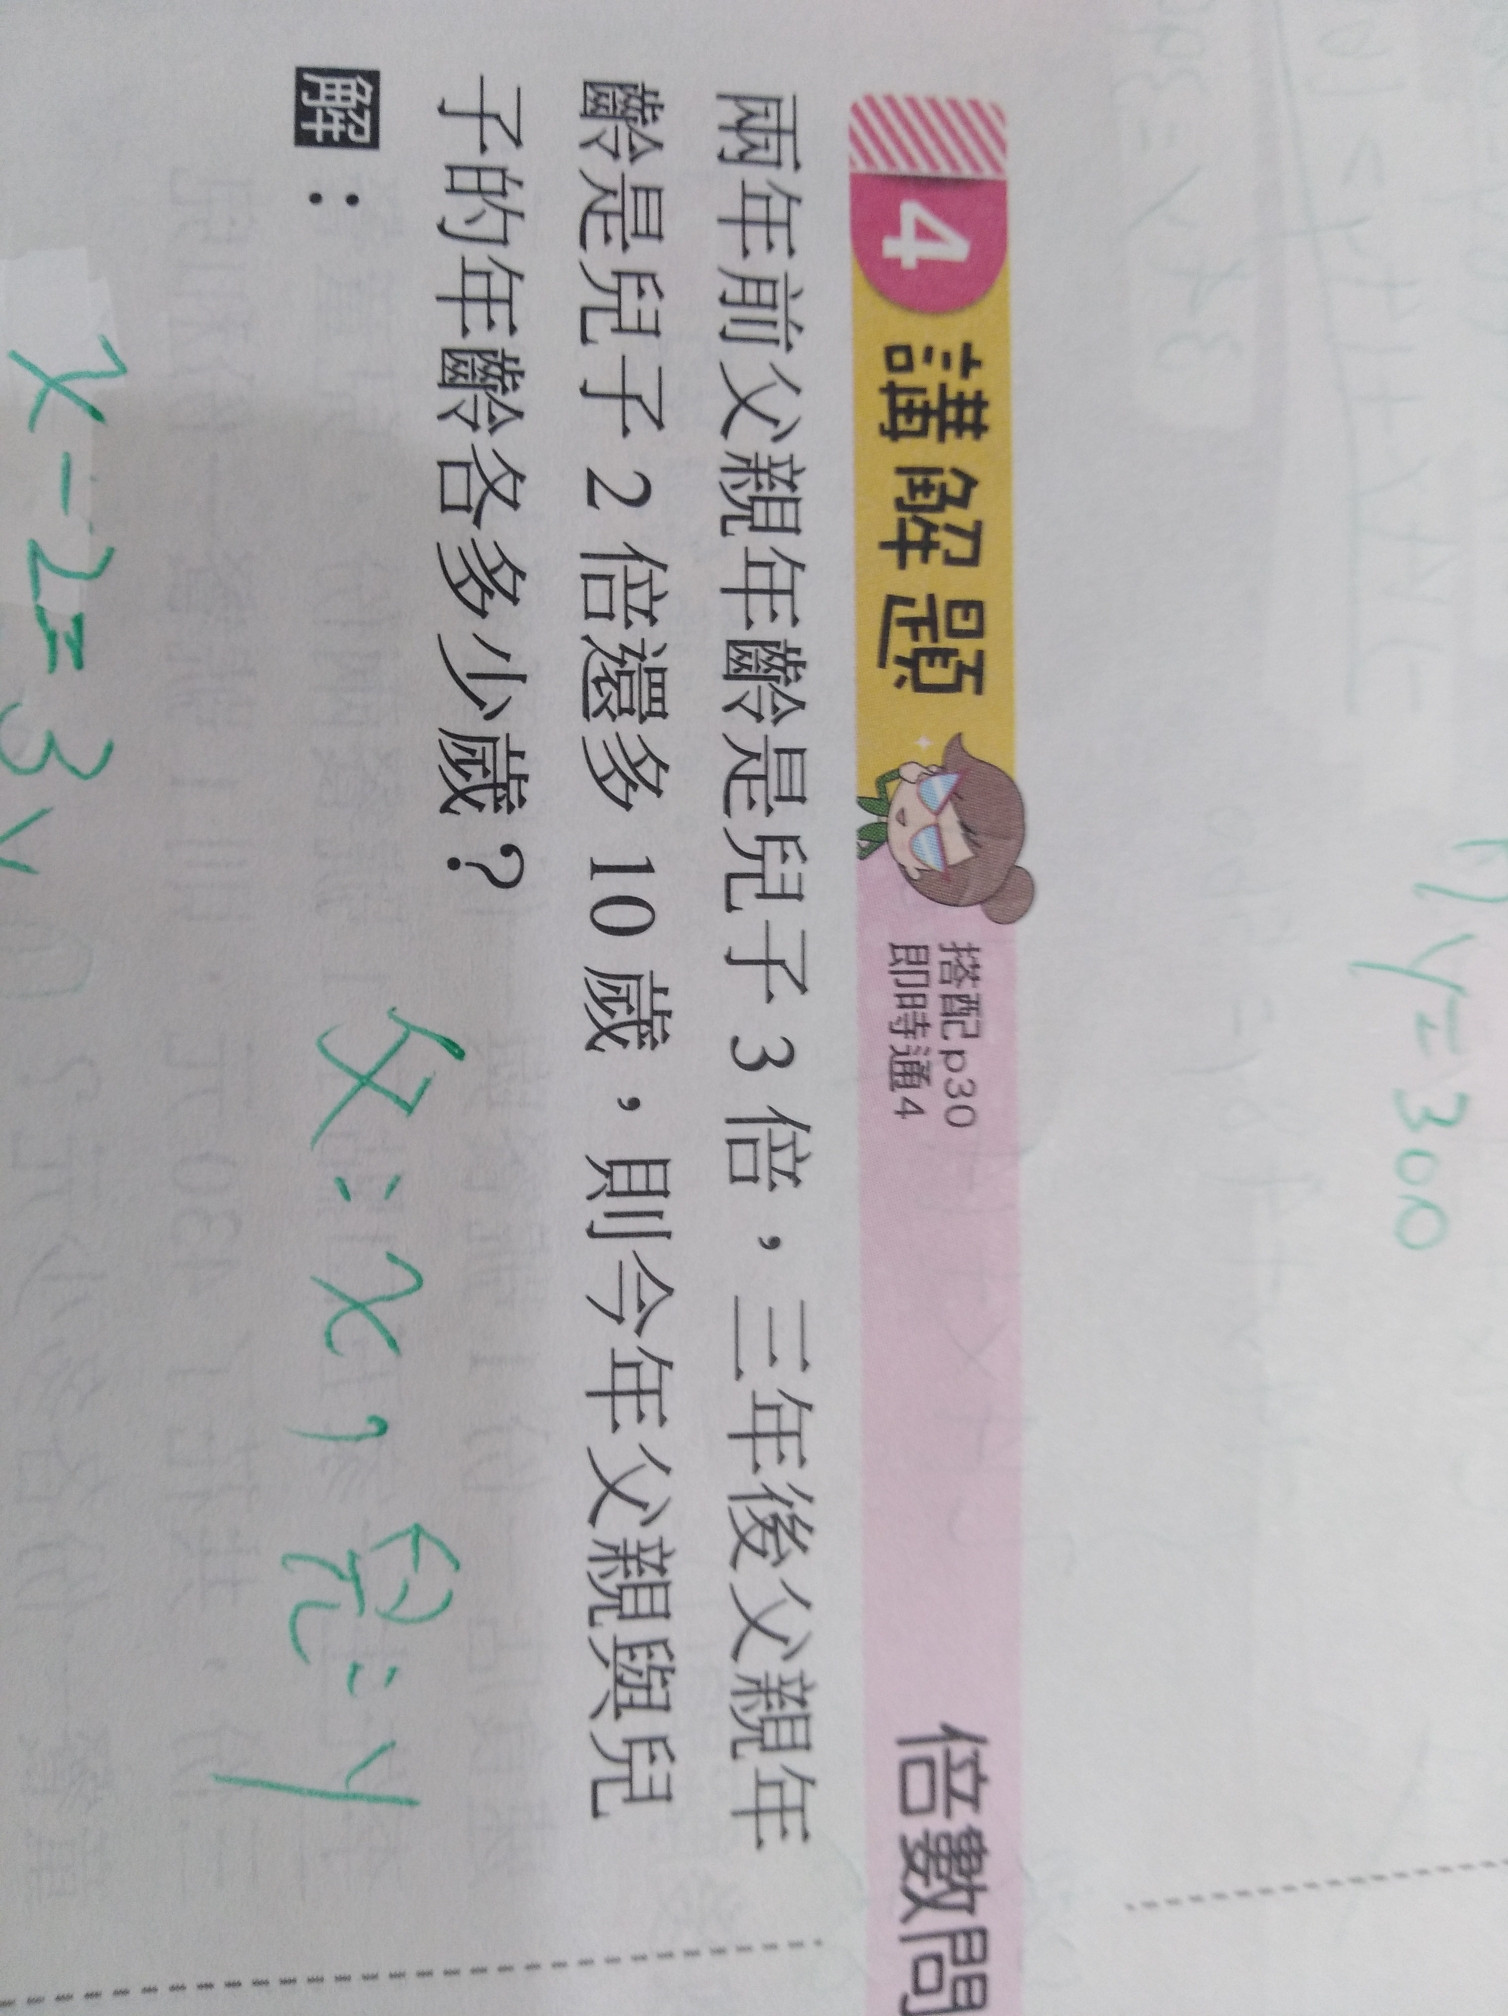 y=300
4 講解題 搭配p30 即時通4 倍數問
兩年前父親年齡是兒子 3 倍，三年後父親年
齡是兒子 2 倍還多 10 歲，則今年父親與兒
子的年齡各多少歲？
解：
父：x，兒：y
x-2=3y